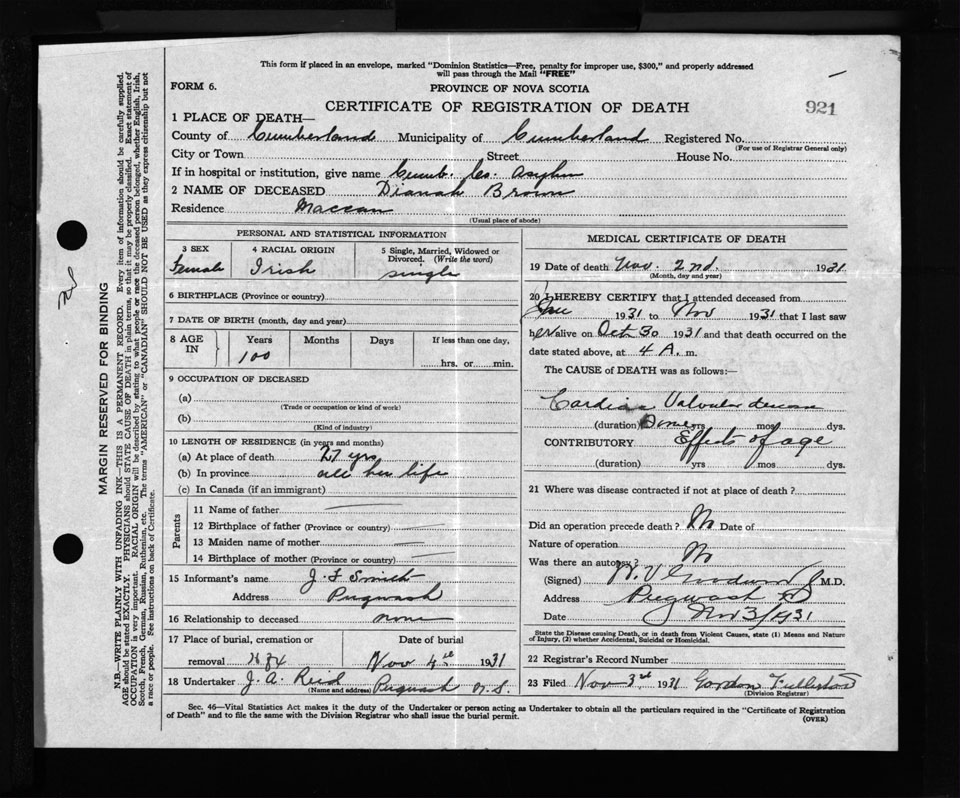 This form if placed in an envelope, marked "Dominion Statistics—Free, penalty for improper use, $300," and properly addressed
will pass through the Mail "FREE"
FORM 6.
PROVINCE OF NOVA SCOTIA
CERTIFICATE OF REGISTRATION OF DEATH
921
1 PLACE OF DEATH—
County of Cumberland Municipality of Cumberland Registered No.
(For use of Registrar General only)
City or Town Street House No.
If in hospital or institution, give name Cumb. Co. Asylum
2 NAME OF DECEASED Dianah Brown
Residence Maccan
(Usual place of abode)
PERSONAL AND STATISTICAL INFORMATION
3 SEX 4 RACIAL ORIGIN 5 Single, Married, Widowed or
Divorced. (Write the word)
Female Irish single
6 BIRTHPLACE (Province or country)
7 DATE OF BIRTH (month, day and year)
8 AGE IN Years Months Days If less than one day,
100 hrs. or min.
9 OCCUPATION OF DECEASED
(a)
(Trade or occupation or kind of work)
(b)
(Kind of industry)
10 LENGTH OF RESIDENCE (in years and months)
(a) At place of death 27 yrs
(b) In province all her life
(c) In Canada (if an immigrant)
Parents
11 Name of father
12 Birthplace of father (Province or country)
13 Maiden name of mother
14 Birthplace of mother (Province or country)
15 Informant's name J. F Smith
Address Pugwash
16 Relationship to deceased none
17 Place of burial, cremation or Date of burial
removal Nov 4th 1931
18 Undertaker J. A. Reid Pugwash N. S.
(Name and address)
MEDICAL CERTIFICATE OF DEATH
19 Date of death Nov. 2nd. 1931
(Month, day and year)
20 I HEREBY CERTIFY that I attended deceased from
1931 to Nov 1931 that I last saw
her alive on Oct 30 1931 and that death occurred on the
date stated above, at 4 A. m.
The CAUSE of DEATH was as follows:—
Cardiac Valvular disease
(duration) yrs mos dys.
CONTRIBUTORY Effects of age
(duration) yrs mos dys.
21 Where was disease contracted if not at place of death?
Did an operation precede death? No Date of
Nature of operation
Was there an autopsy? No
(Signed) M.D.
Address Pugwash
Date Nov 3/1931
State the Disease causing Death, or in death from Violent Causes, state (1) Means and Nature
of Injury, (2) whether Accidental, Suicidal or Homicidal.
22 Registrar's Record Number
23 Filed Nov 3rd 1931 Gordon Fullerton
(Division Registrar)
Sec. 46—Vital Statistics Act makes it the duty of the Undertaker or person acting as Undertaker to obtain all the particulars required in the "Certificate of Registration
of Death" and to file the same with the Division Registrar who shall issue the burial permit.
(OVER)
MARGIN RESERVED FOR BINDING
N.B.—WRITE PLAINLY WITH UNFADING INK—THIS IS A PERMANENT RECORD. Every item of information should be carefully supplied.
AGE should be stated EXACTLY. PHYSICIANS should STATE CAUSE OF DEATH in plain terms, so that it may be properly classified. Exact statement of
OCCUPATION is very important. RACIAL ORIGIN will be described by stating to what people or race the deceased person belonged, whether English, Irish,
Scotch, French, German, Russian, Ruthenian, etc. The terms "AMERICAN" or "CANADIAN" SHOULD NOT BE USED as they express citizenship but not
a race or people. See instructions on back of Certificate.